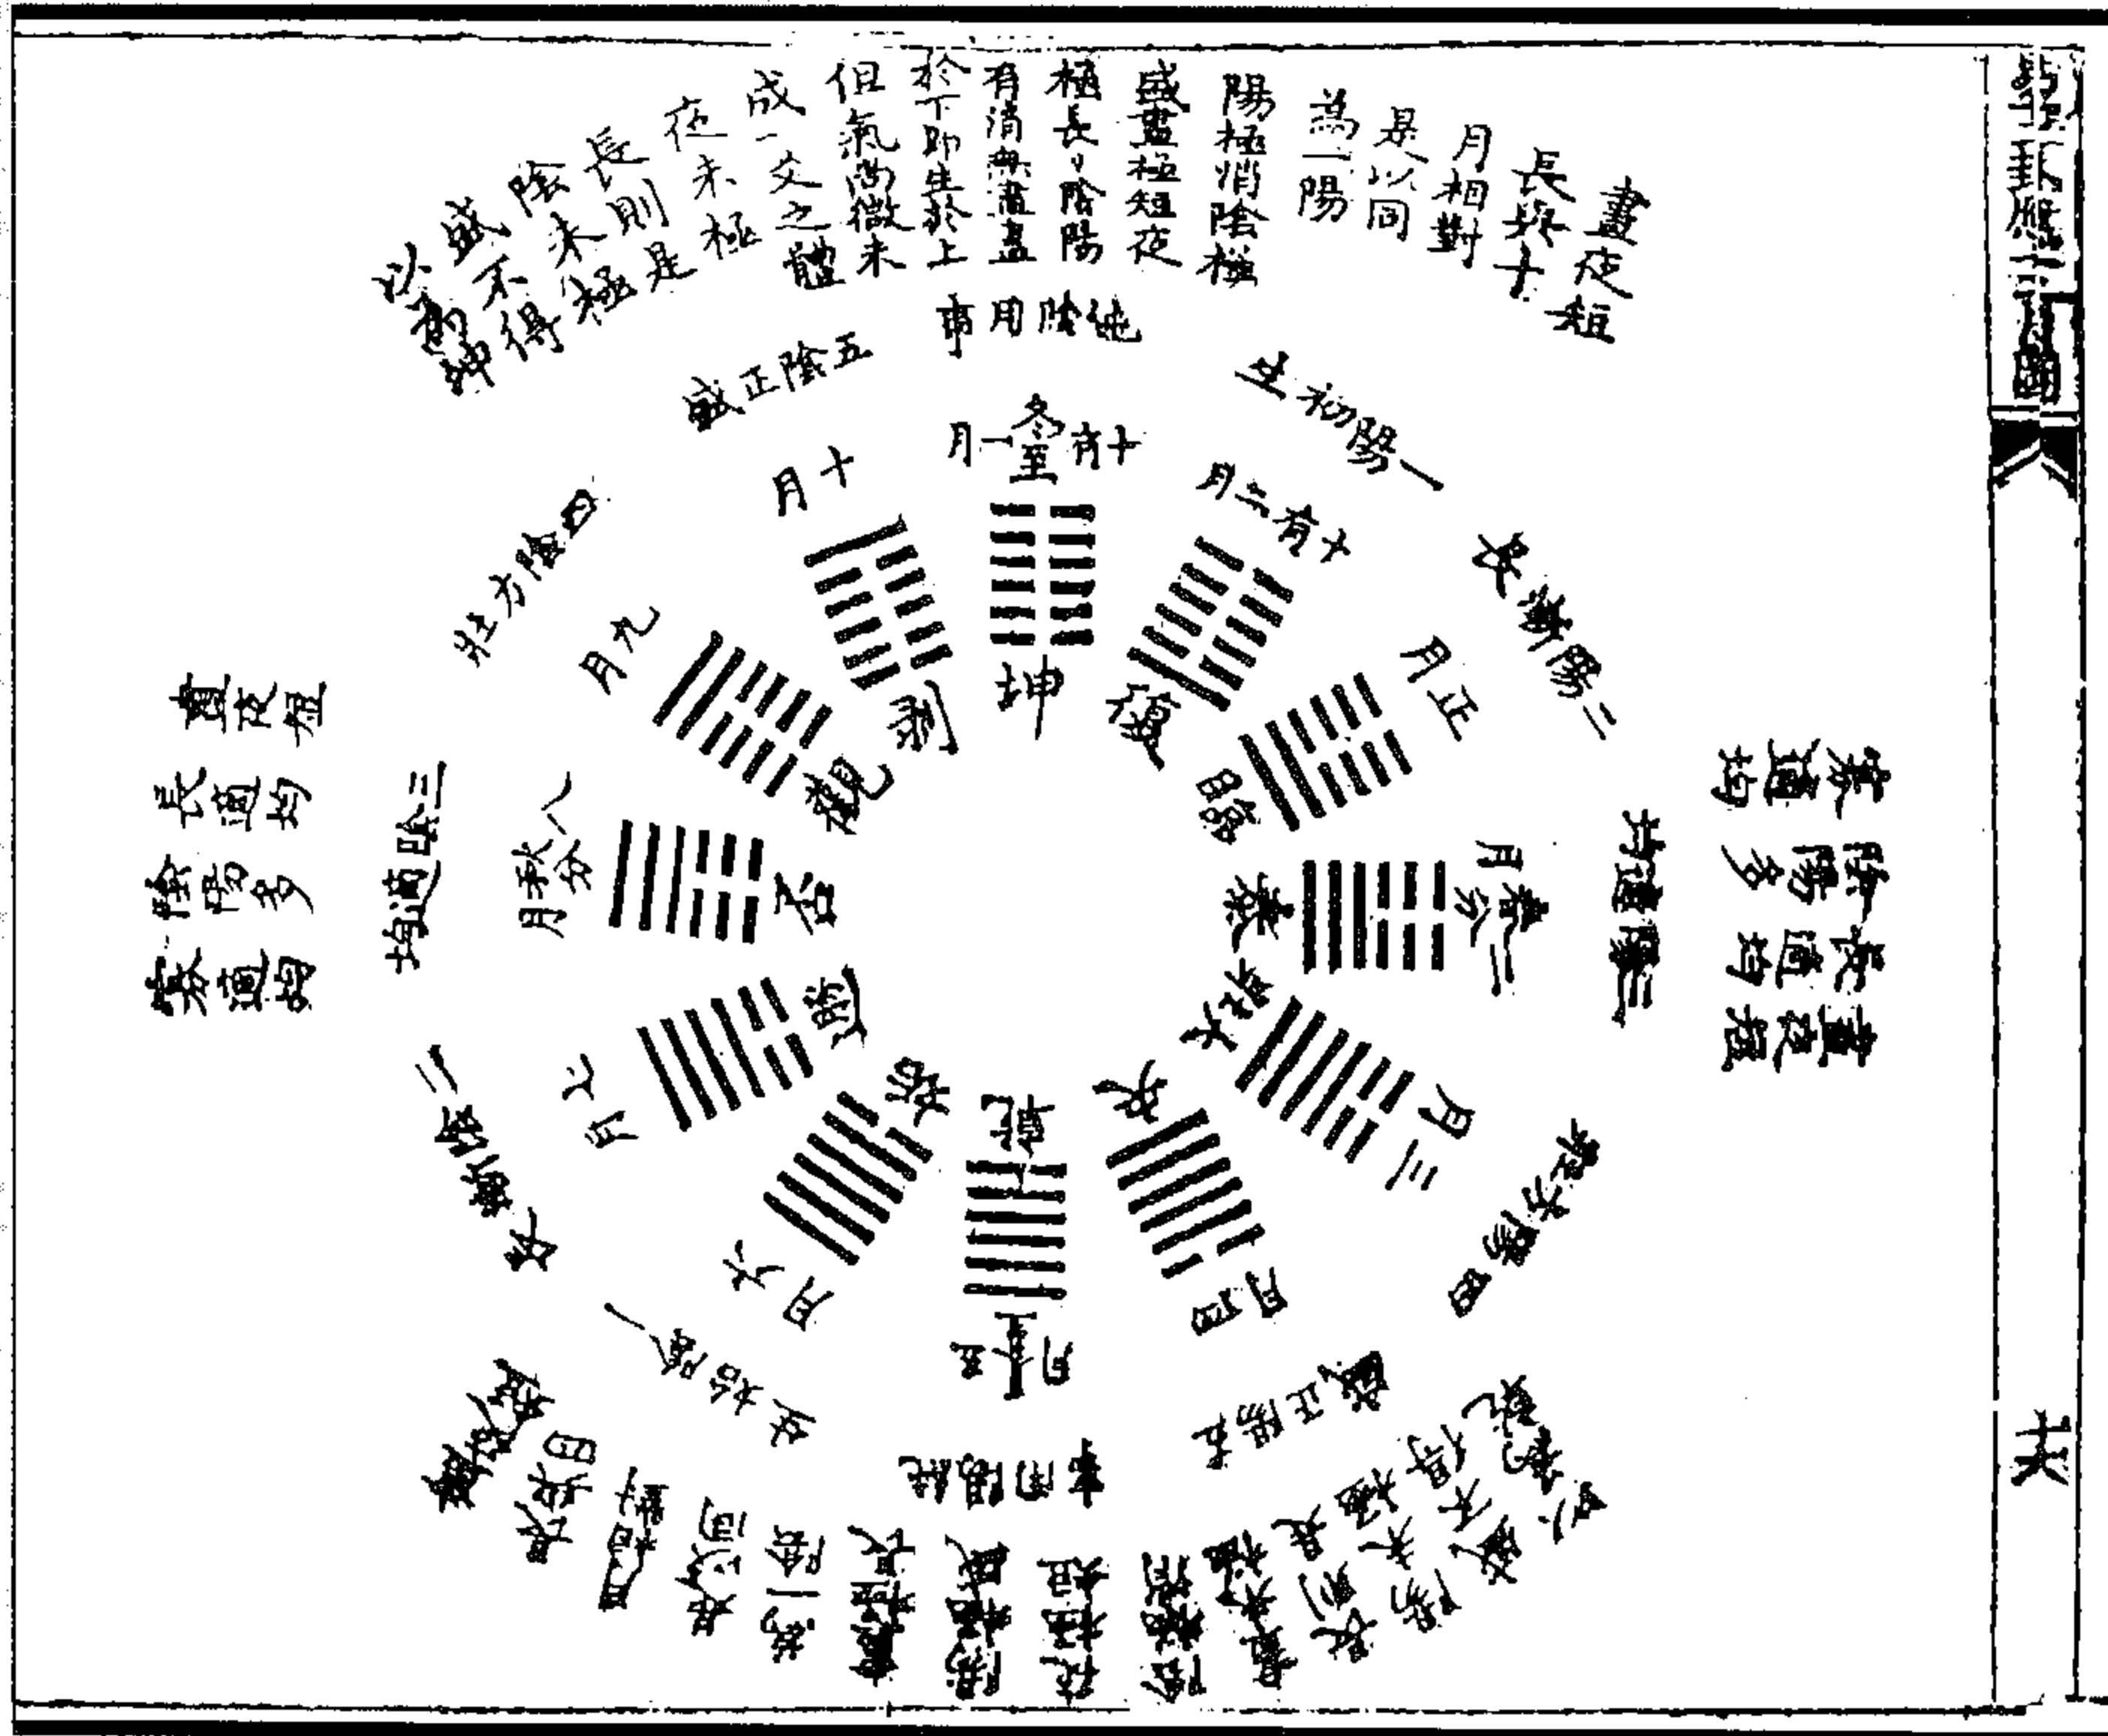 晝夜短
長與十
月相對
是以同
為一陽
陽極消陰極
盛晝極短夜
極長〻陰陽
有消無盡盡
於下即生於上
但氣尚微未
成一爻之體
夜未極
長則是
陰未極
盛不得
以為坤
純陰用事
一陽初生
二陽漸長
三陽適均
四陽方壯
五陽正盛
純陽用事
一陰始生
二陰漸長
三陰適均
四陰方壯
五陰正盛
十有一月
冬至
十有二月
正月
二月
春分
三月
四月
五月
六月
七月
八月
秋分
九月
十月
坤
復
臨
泰
大壯
夬
乾
姤
遯
否
觀
剝
晝夜短
長適均
陰陽多
寡適均
晝夜短
長適均
陰陽多
寡適均
晝夜短
長與四
月相對
是以同
為一陰
晝極長
陽極盛
夜極短
陰極消
晝未極
長則是
陽未極
盛不得
以為乾
十六